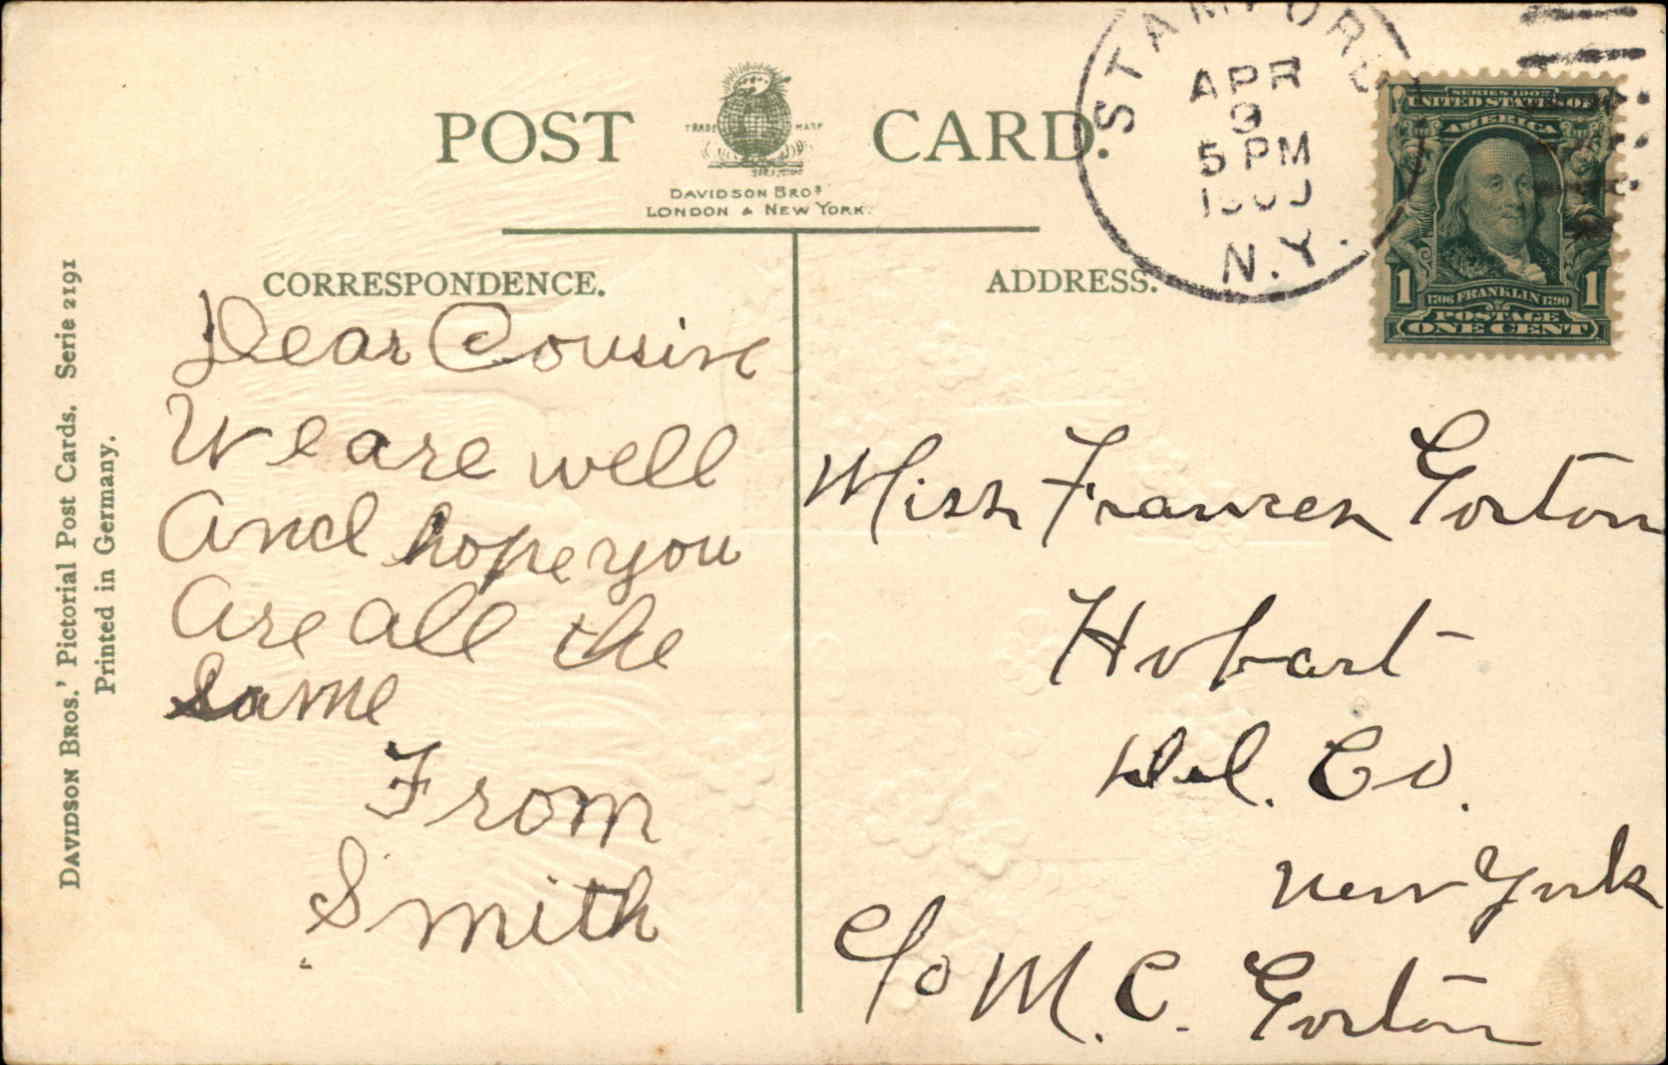 POST CARD.
TRADE MARK
DAVIDSON BROS
LONDON & NEW YORK.
CORRESPONDENCE.
Dear Cousin
We are well
And hope you
Are all the
Same
From
Smith
ADDRESS.
Miss Frances Gorton
Hobart
Del. Co.
New York
c/o M. C. Gorton
STAMFORD
APR
9
5 PM
N.Y.
SERIES 1902
UNITED STATES OF
AMERICA
1 1706 FRANKLIN 1790 1
POSTAGE
ONE CENT
DAVIDSON BROS.' Pictorial Post Cards. Serie 2191
Printed in Germany.